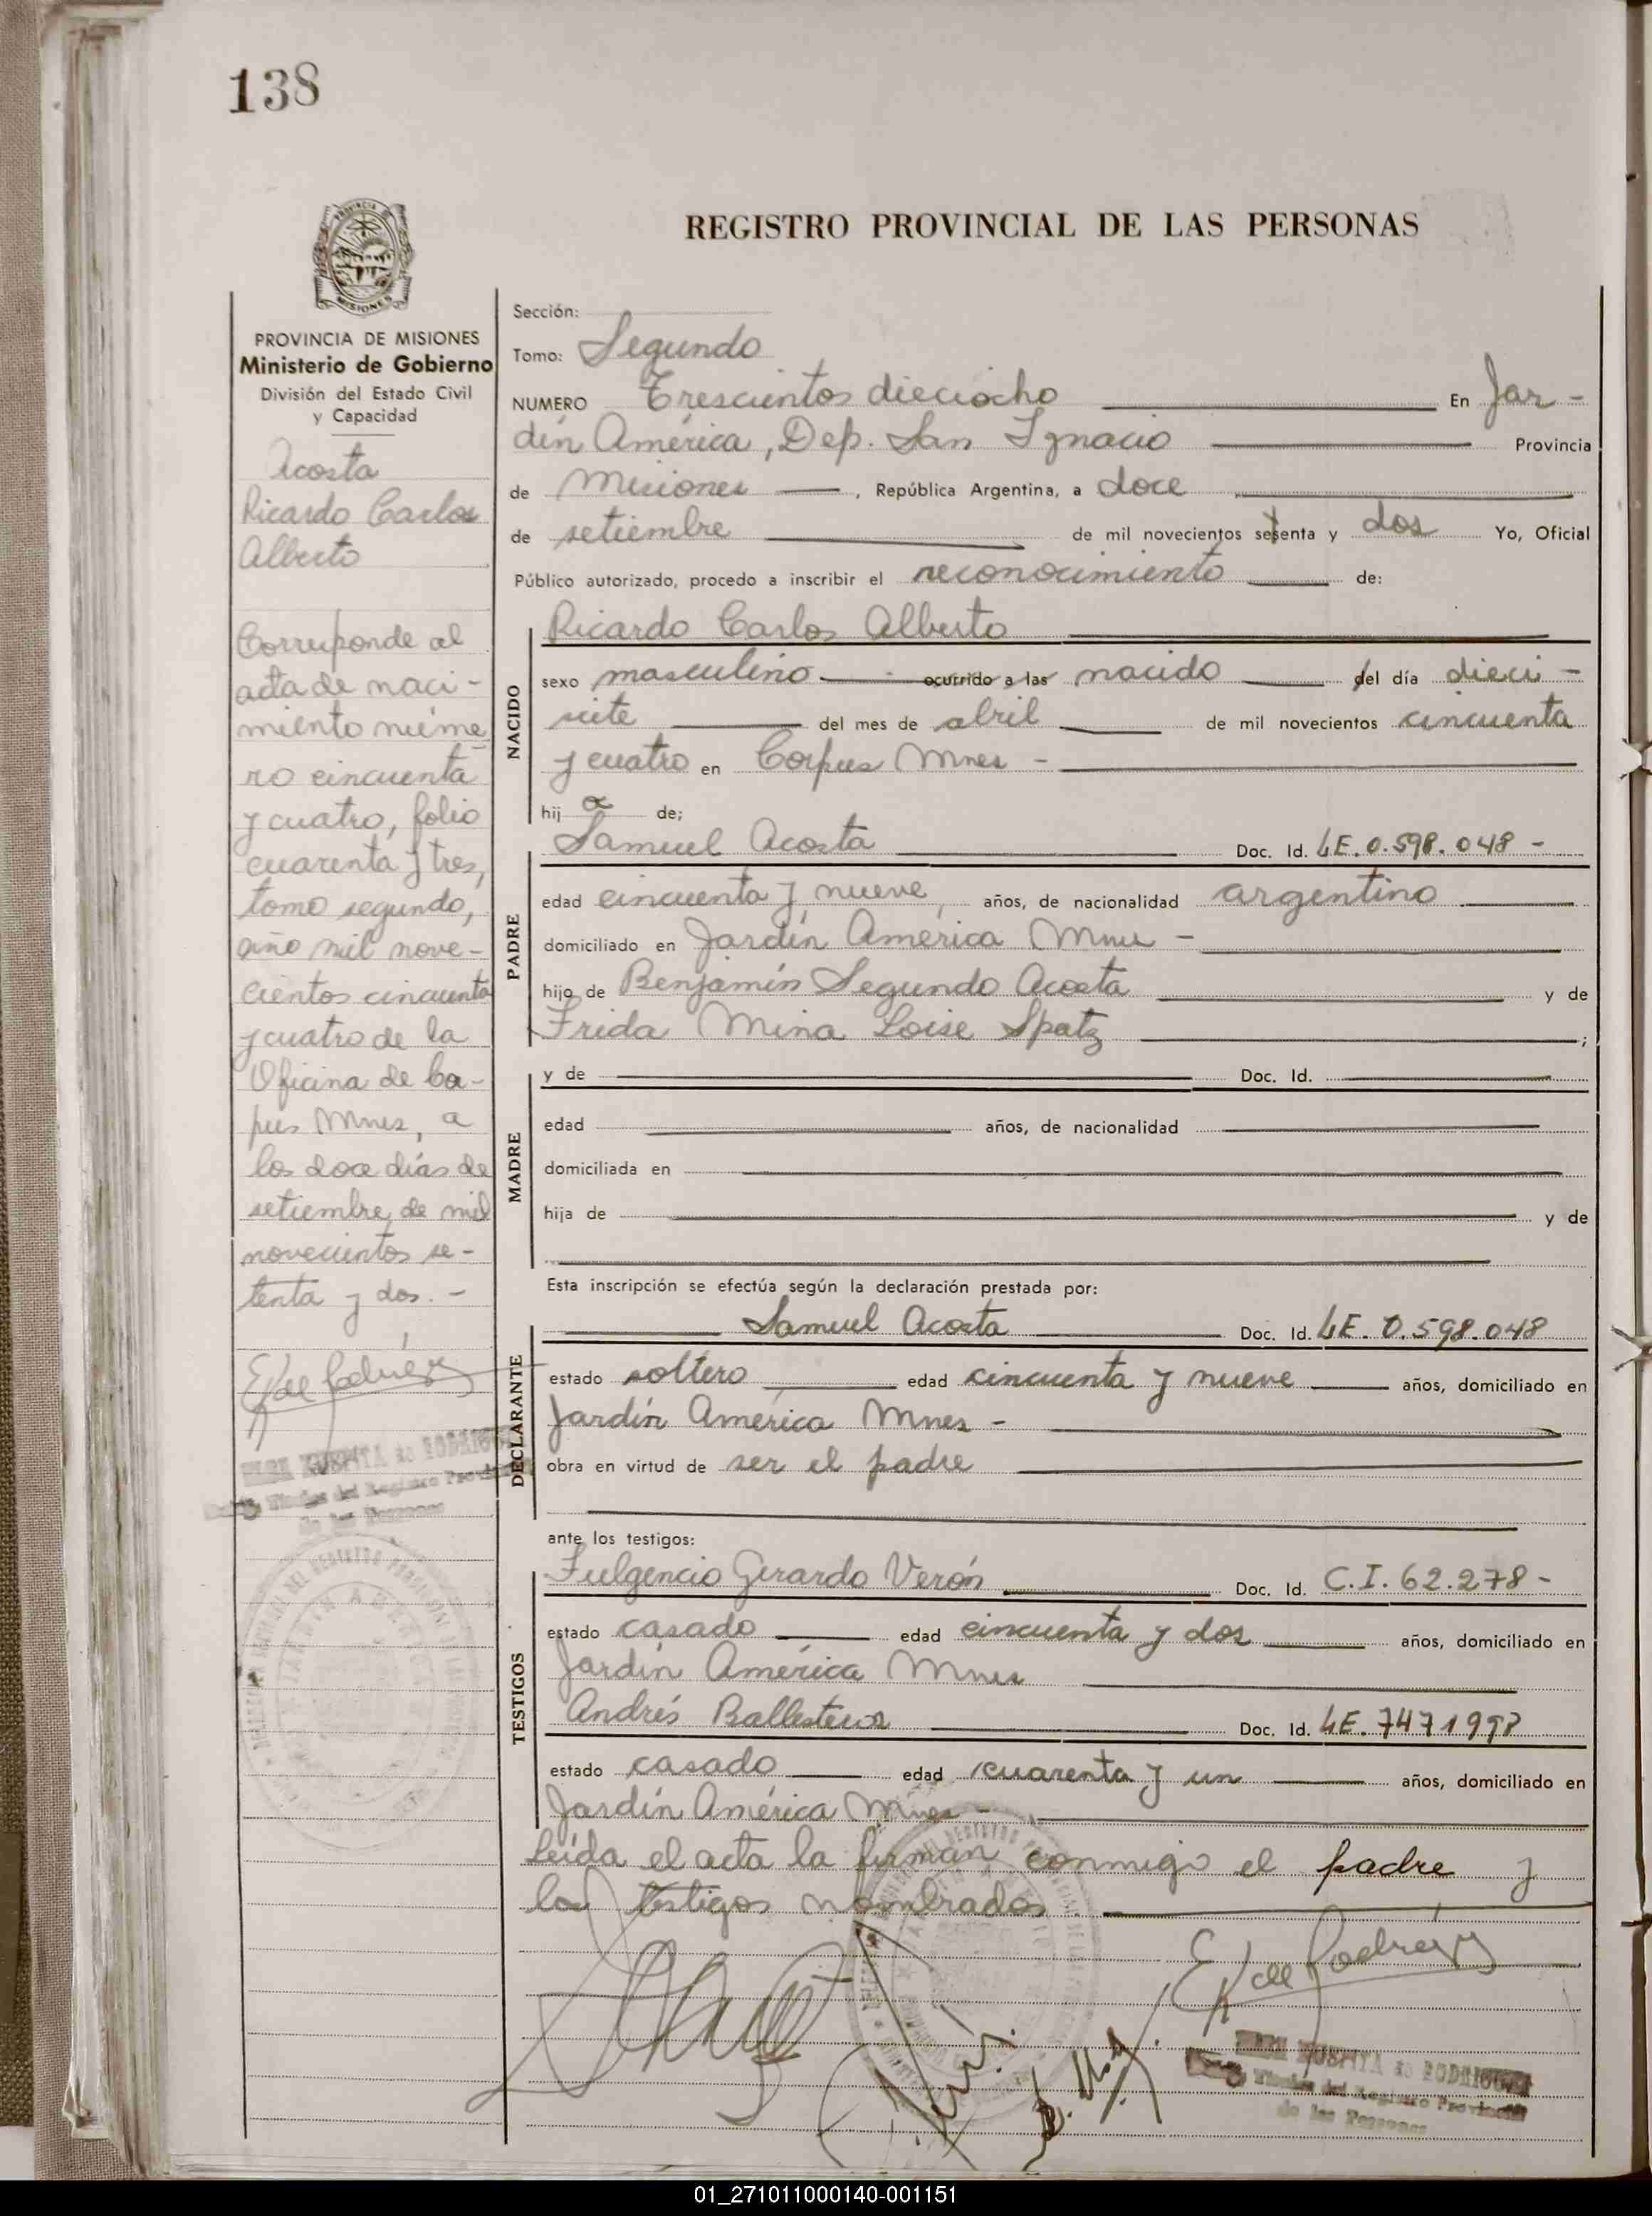 138
REGISTRO PROVINCIAL DE LAS PERSONAS
MISIONES
PROVINCIA DE MISIONES
Ministerio de Gobierno
División del Estado Civil
y Capacidad
Acosta
Ricardo Carlos
Alberto
Corresponde al
acta de naci-
miento núme
ro cincuenta
y cuatro, folio
cuarenta y tres,
tomo segundo,
año mil nove-
cientos cincuenta
y cuatro de la
Oficina de Cor-
pus Mnes, a
los doce días de
setiembre de mil
novecientos se-
tenta y dos. -
Sección:
Tomo: Segundo
NUMERO Trescientos dieciocho En Jar-
dín América, Dep. San Ignacio Provincia
de Misiones, República Argentina, a doce
de setiembre de mil novecientos setenta y dos Yo, Oficial
Público autorizado, procedo a inscribir el reconocimiento de:
NACIDO
Ricardo Carlos Alberto
sexo masculino ocurrido a las nacido del día dieci-
siete del mes de abril de mil novecientos cincuenta
y cuatro en Corpus Mnes -
hij o de;
PADRE
Samuel Acosta Doc. Id. LE. 0.598.048 -
edad cincuenta y nueve, años, de nacionalidad argentino
domiciliado en Jardín América Mnes -
hijo de Benjamín Segundo Acosta y de
Frida Mina Loise Spatz ;
MADRE
y de Doc. Id.
edad años, de nacionalidad
domiciliada en
hija de y de
Esta inscripción se efectúa según la declaración prestada por:
DECLARANTE
Samuel Acosta Doc. Id. LE. 0.598.048
estado soltero edad cincuenta y nueve años, domiciliado en
Jardín América Mnes -
obra en virtud de ser el padre
ante los testigos:
TESTIGOS
Fulgencio Gerardo Verón Doc. Id. C.I. 62.278 -
estado casado edad cincuenta y dos años, domiciliado en
Jardín América Mnes
Andrés Ballesteros Doc. Id. LE. 7471998
estado casado edad cuarenta y un años, domiciliado en
Jardín América Mnes -
Leída el acta la firman conmigo el padre y
los testigos nombrados
de RODRIGUEZ
Titular del Registro Provincial
de las Personas
01_271011000140-001151